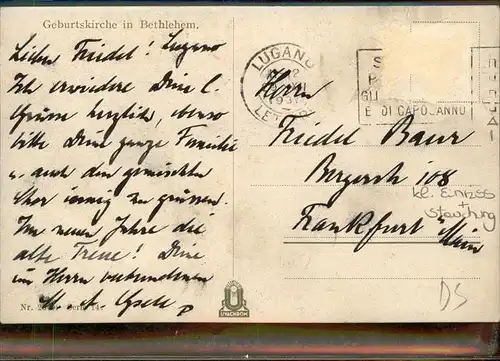 Geburtskirche in Bethlehem.
Lieber Friedel! Lugano
Ich erwidere Deine l.
Grüsse herzlich, ebenso
bitte Deine ganze Familie
u. auch den gemischten
Chor innig zu grüssen.
Im neuen Jahre die
alte Treue! Deine
im Herrn verbundenen
LUGANO
E DI CAPODANNO
Herrn
Friedel Baur
Bergerstr 108
Frankfurt a/Main
kl. Einriss
+
Stauchung
DS
UVACHROM
Nr. Serie 14.